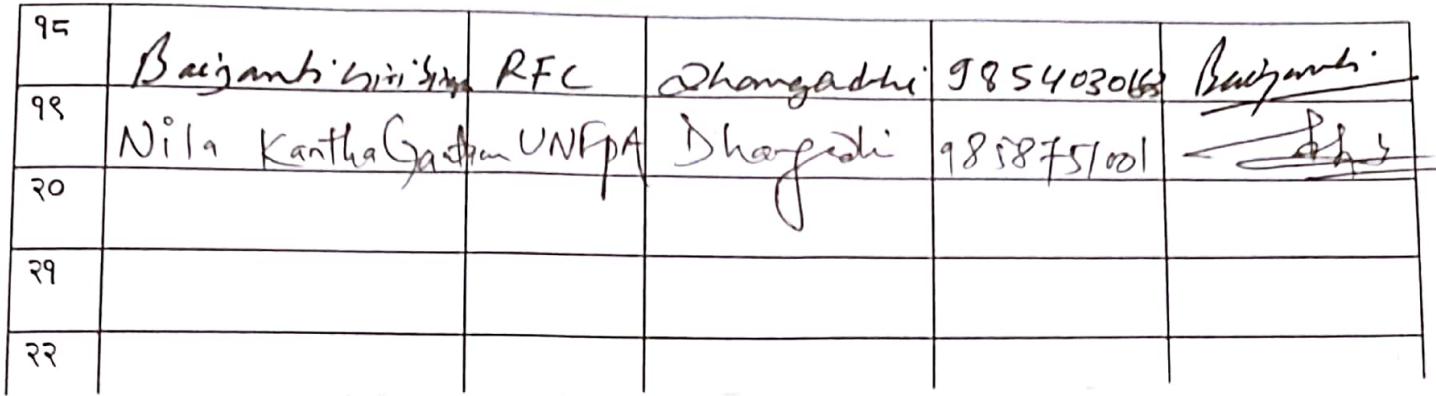 १८ Baijanti Giri Singh RFC Dhangadhi 9854030163 Baijanti
१९ Nila Kantha Gautam UNFPA Dhangadi 9858751001
२०
२१
२२